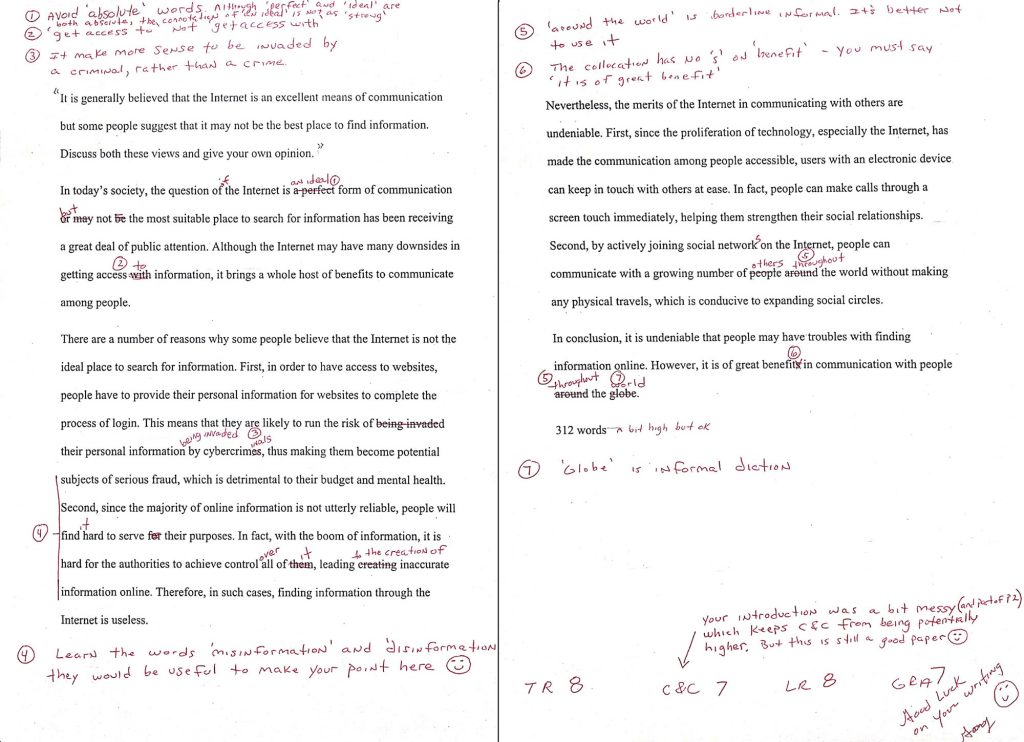 ① Avoid 'absolute' words. Although 'perfect' and 'ideal' are
both absolute, the connotation of 'an ideal' is not as 'strong'
② 'get access to' not 'get access with'
③ It make more sense to be invaded by
a criminal, rather than a crime.
"It is generally believed that the Internet is an excellent means of communication
but some people suggest that it may not be the best place to find information.
Discuss both these views and give your own opinion."
if an ideal ①
In today's society, the question of the Internet is a perfect form of communication
but
or may not be the most suitable place to search for information has been receiving
a great deal of public attention. Although the Internet may have many downsides in
② to
getting access with information, it brings a whole host of benefits to communicate
among people.
There are a number of reasons why some people believe that the Internet is not the
ideal place to search for information. First, in order to have access to websites,
people have to provide their personal information for websites to complete the
process of login. This means that they are likely to run the risk of being invaded
being invaded ③ inals
their personal information by cybercrimes, thus making them become potential
subjects of serious fraud, which is detrimental to their budget and mental health.
Second, since the majority of online information is not utterly reliable, people will
④ it
find hard to serve for their purposes. In fact, with the boom of information, it is
over it to the creation of
hard for the authorities to achieve control all of them, leading creating inaccurate
information online. Therefore, in such cases, finding information through the
Internet is useless.
④ Learn the words 'misinformation' and 'disinformation'
they would be useful to make your point here
⑤ 'around the world' is borderline informal. It's better not
to use it
⑥ The collocation has no 's' on 'benefit' - you must say
'it is of great benefit'
Nevertheless, the merits of the Internet in communicating with others are
undeniable. First, since the proliferation of technology, especially the Internet, has
made the communication among people accessible, users with an electronic device
can keep in touch with others at ease. In fact, people can make calls through a
screen touch immediately, helping them strengthen their social relationships.
s
Second, by actively joining social network on the Internet, people can
others ⑤ throughout
communicate with a growing number of people around the world without making
any physical travels, which is conducive to expanding social circles.
In conclusion, it is undeniable that people may have troubles with finding
⑥
information online. However, it is of great benefits in communication with people
⑤ throughout ⑦ world
around the globe.
312 words a bit high but ok
⑦ 'Globe' is informal diction
Your introduction was a bit messy (and part of P2)
which keeps C&C from being potentially
higher. But this is still a good paper
TR 8 C&C 7 LR 8 GRA 7
Good Luck
on your writing